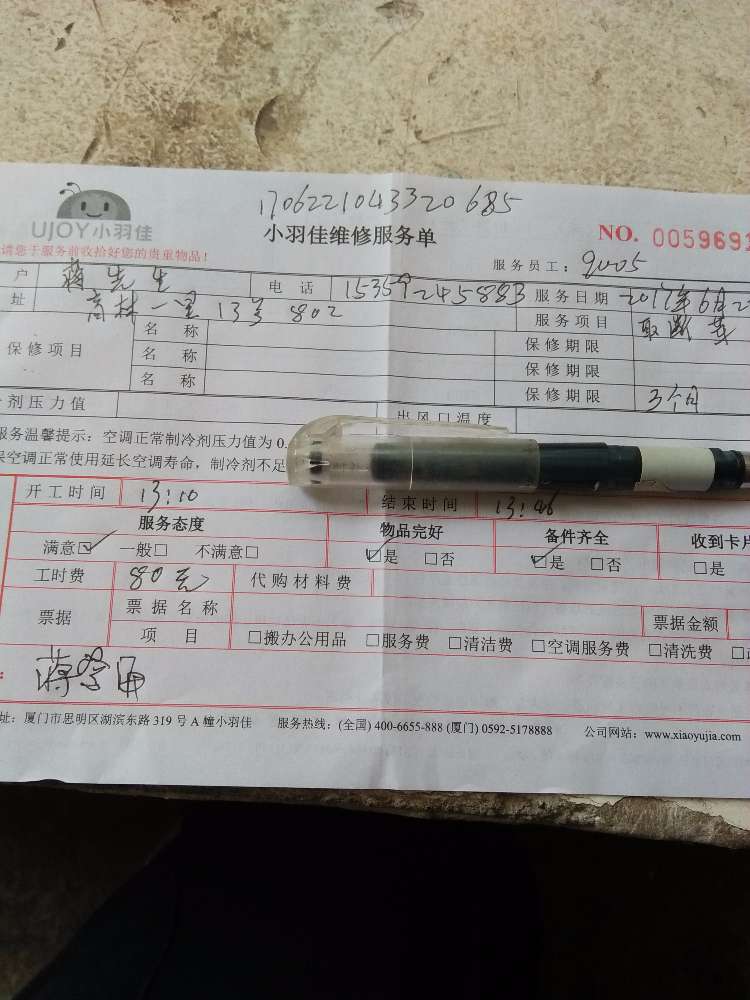 1706221043320685
UJOY小羽佳
小羽佳维修服务单
NO. 0059691
请您于服务前收拾好您的贵重物品!
服务员工: 9005
户 蒋先生 电话 15359245883 服务日期 2017年6月2
址 高林一里13号802 服务项目 取断
保修项目 名称 保修期限
名称 保修期限
名称 保修期限 3个月
剂压力值 出风口温度
服务温馨提示: 空调正常制冷剂压力值为0.
保空调正常使用延长空调寿命, 制冷剂不足
开工时间 13:10 结束时间 13:46
服务态度 物品完好 备件齐全 收到卡片
满意☑ 一般□ 不满意□ ☑是 □否 ☑是 □否 □是
工时费 80元 代购材料费
票据 票据名称 票据金额
项目 □搬办公用品 □服务费 □清洁费 □空调服务费 □清洗费
址: 厦门市思明区湖滨东路319号A幢小羽佳 服务热线: (全国) 400-6655-888 (厦门) 0592-5178888 公司网站: www.xiaoyujia.com